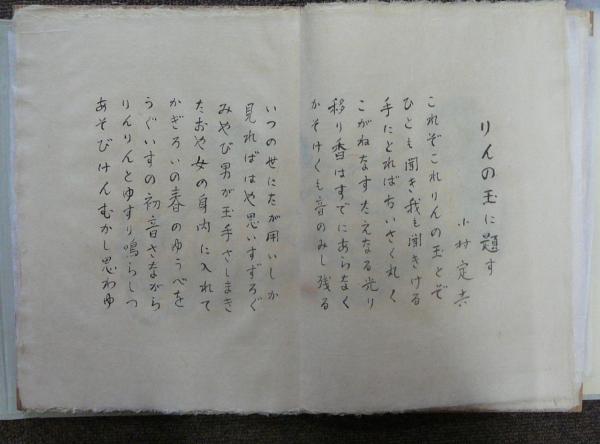 りんの玉に題す
小村定吉
これぞこれりんの玉とぞ
ひとも聞き我も聞きける
手にとればちいさく丸く
こがねなすたえなる光り
移り香はすでにあらなく
かそけくも音のみし残る
いつの世にたが用いしか
見ればはや思いすずろぐ
みやび男が玉手さしまき
たおや女の身内に入れて
かぎろいの春のゆうべを
うぐいすの初音さながら
りんりんとゆすり鳴らしつ
あそびけんむかし思わゆ